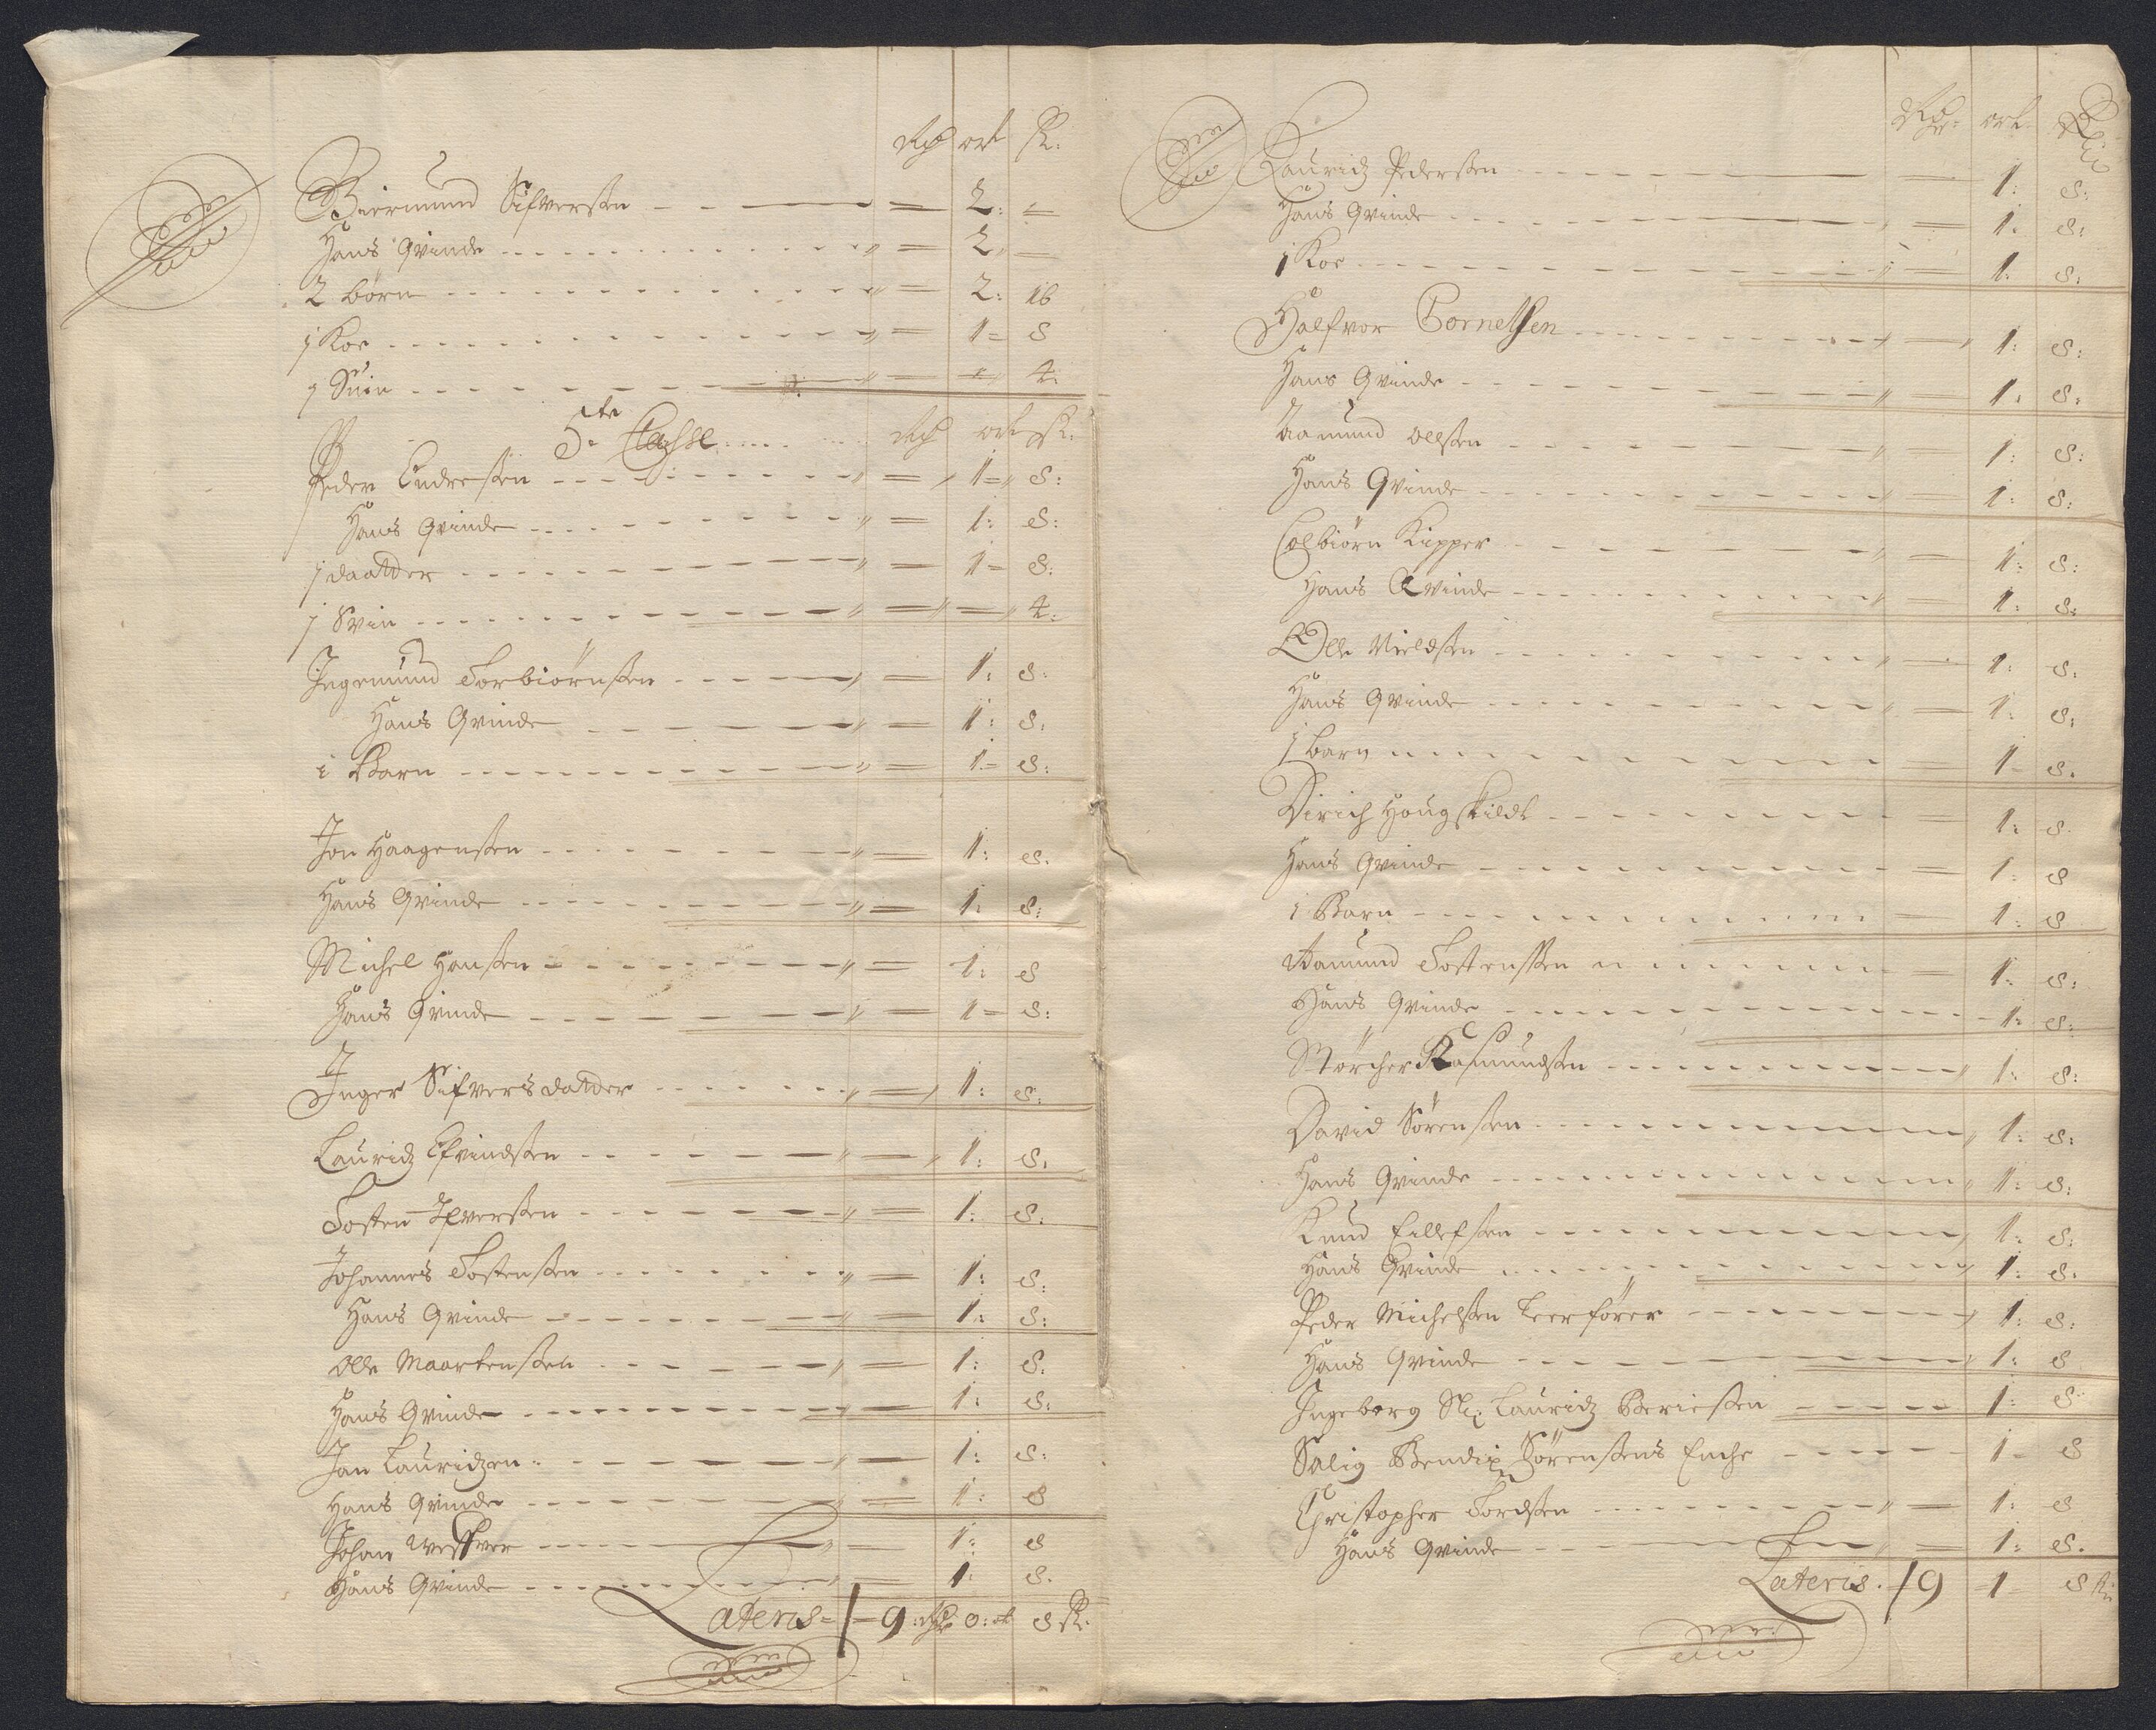 Rdr ort sk:
Biermund Sifversen = 2: =
Hans Qvinde = 2 =
2 børn = 2: 16
1 Koe = 1 = 8
1 Suin = = 4:
5te Classe Rdr ort sk:
Peder Endresen = 1 = 8:
Hans Qvinde = 1: 8:
1 daatter = 1 = 8:
1 Svin = = 4:
Ingemund Torbiørnsen = 1: 8:
Hans Qvinde = 1: 8:
1 Barn = 1 = 8:
Jon Haagensen = 1: 8:
Hans Qvinde = 1: 8:
Michel Hansen = 1: 8
Hans Qvinde = 1 = 8:
Inger Sifversdatter = 1: 8:
Lauridz Efvindsen = 1: 8:
Tosten Ifversen = 1: 8:
Johannes Tostensen = 1: 8:
Hans Qvinde = 1: 8:
Olle Maartensen = 1: 8:
Hans Qvinde = 1: 8:
Jan Lauridzen = 1: 8:
Hans Qvinde = 1: 8
Johan = 1: 8
Hans Qvinde = 1: 8.
Lateris = 19: Rdr 0: ort 8 sk:
Rdr: ort
Lauridz Pedersen = 1: 8:
Hans Qvinde = 1: 8:
1 Koe = 1: 8:
Halfvor Cornelsen = 1: 8:
Hans Qvinde = 1: 8:
Aamund Olsen = 1: 8:
Hans Qvinde = 1: 8:
Colbiørn Kipper = 1: 8:
Hans Qvinde = 1: 8:
Olle Nielsen = 1: 8:
Hans Qvinde = 1: 8:
1 barn = 1 8.
Dirich Hougskildt = 1: 8.
Hans Qvinde = 1: 8
1 Barn = 1: 8
Aamund Tostensen = 1: 8:
Hans Qvinde 1: 8:
Mørcher Rasmundsen 1: 8:
David Sørensen 1: 8:
Hans Qvinde 1: 8:
Knud Eillefsen 1: 8:
Hans Qvinde 1: 8.
Peder Michelsen 1: 8:
Hans Qvinde 1: 8
Ingeborg Sl: Lauridz 1: 8:
Salig Bendix Sørensens Enche 1 - 8
Christopher Tordsen = 1: 8
Hans Qvinde = 1: 8.
Lateris. 19 1 8 sk